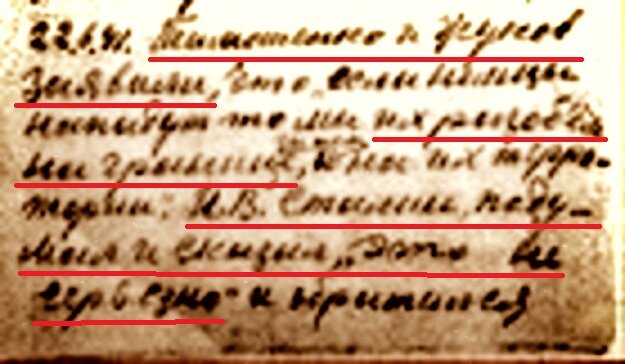 22.6.41. Тимошенко и Жуков
заявили, что если немцы
нападут то мы их разобьем
на границе, и на их терри-
тории. И.В. Сталин поду-
мал и сказал „Это не
серьезно" и